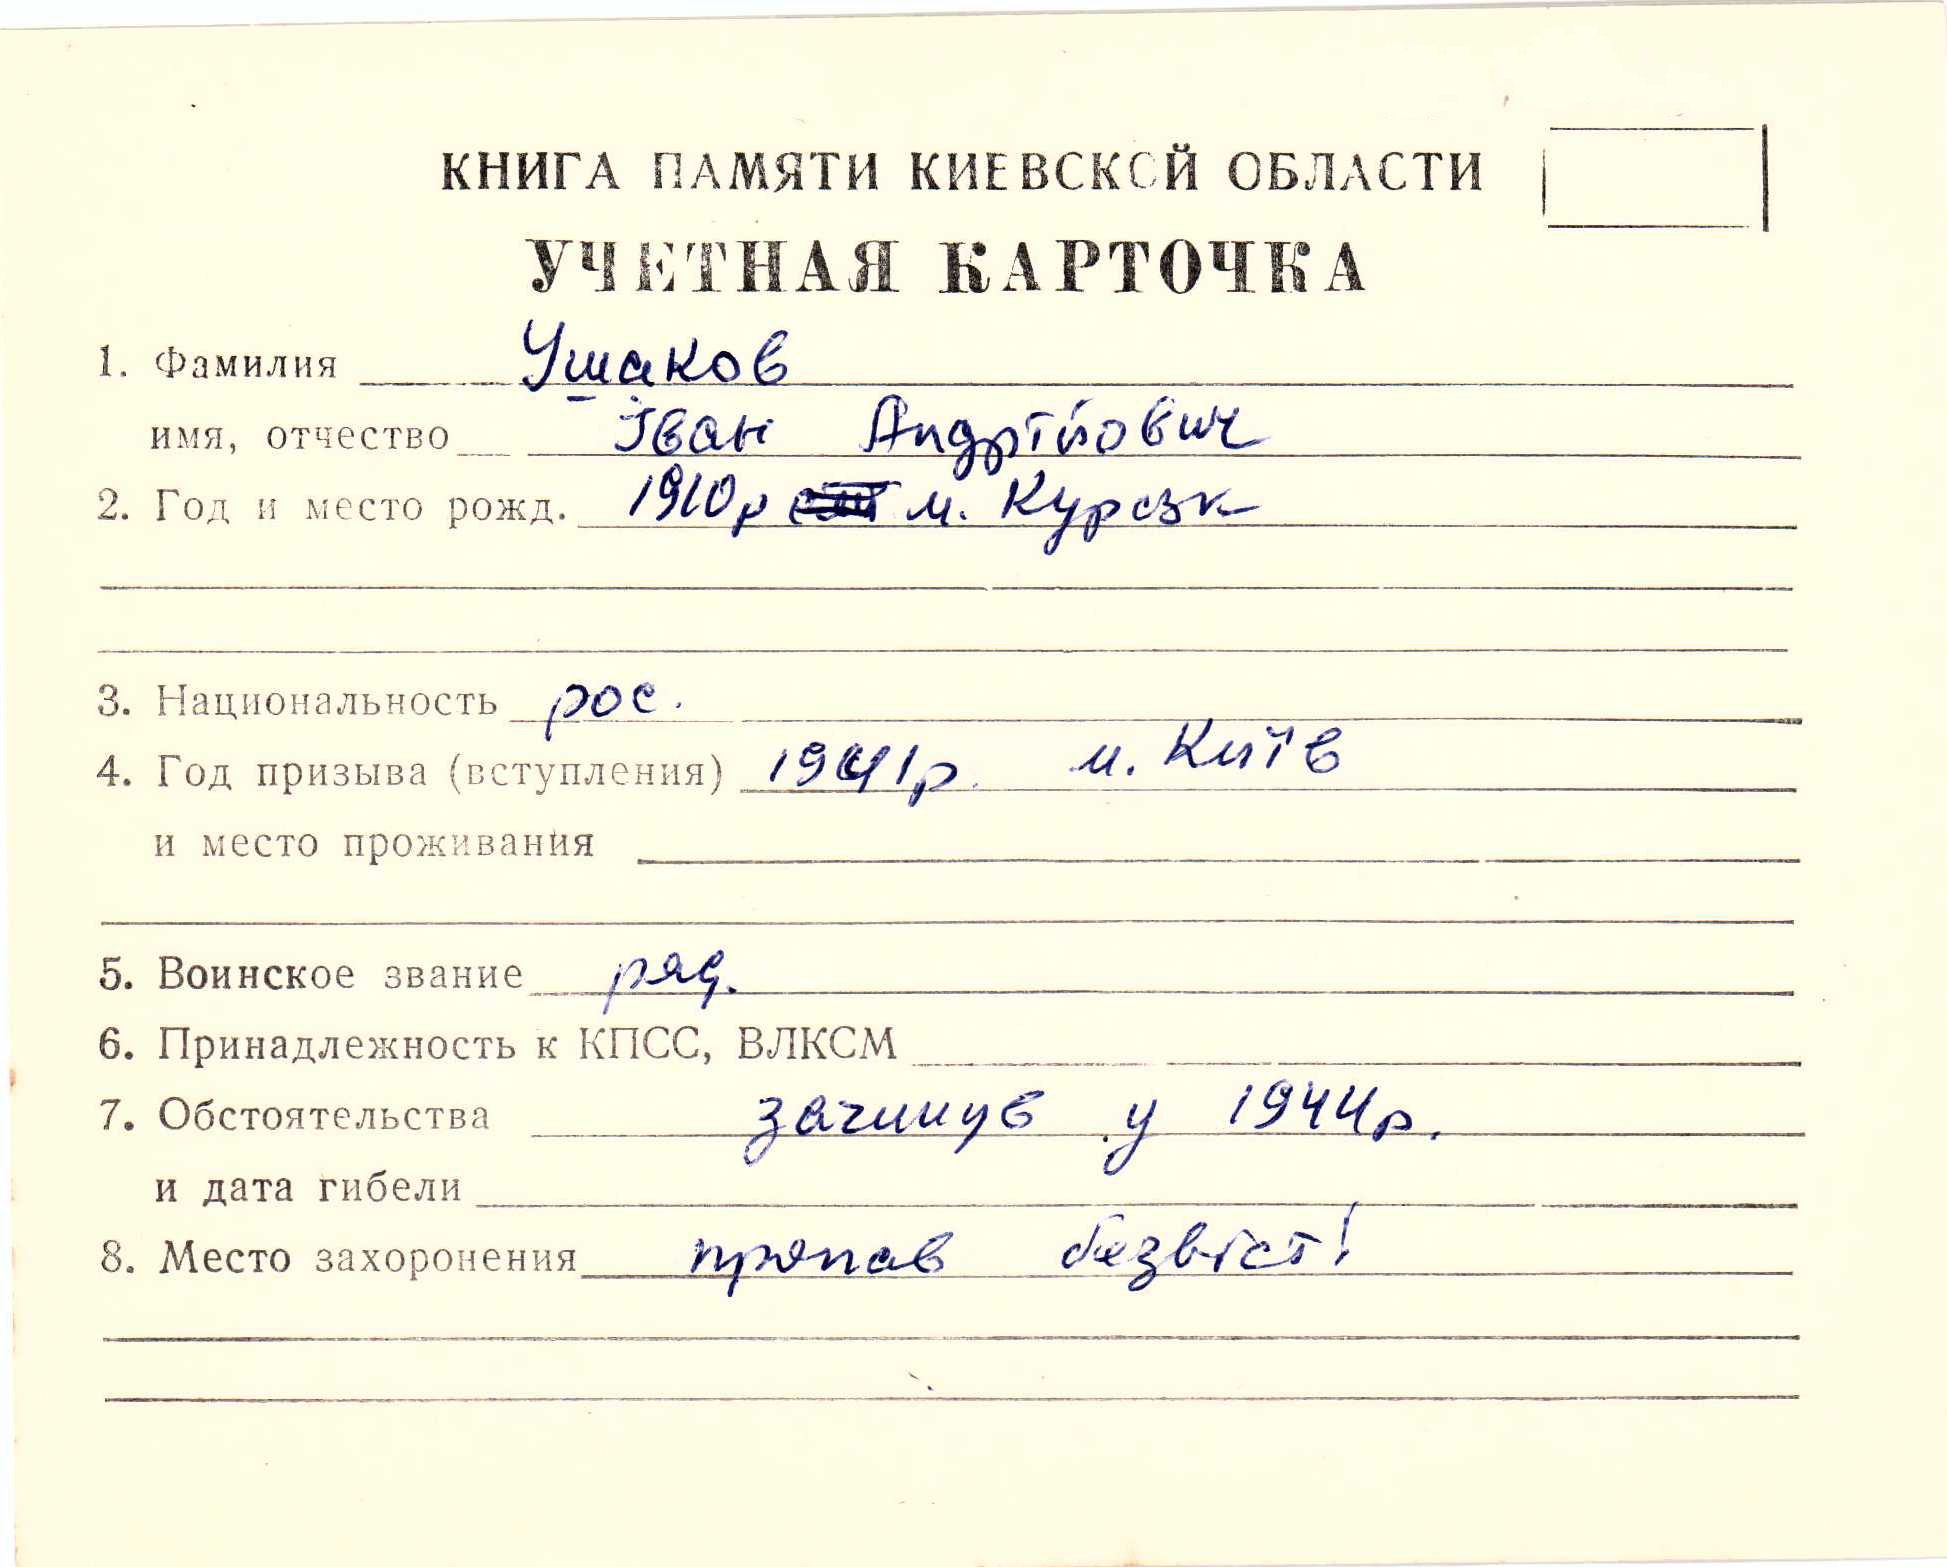 КНИГА ПАМЯТИ КИЕВСКОЙ ОБЛАСТИ
УЧЕТНАЯ КАРТОЧКА
1. Фамилия Ушаков
имя, отчество Іван Андрійович
2. Год и место рожд. 1910р м. Курськ
3. Национальность рос.
4. Год призыва (вступления) 1941р. м. Київ
и место проживания
5. Воинское звание ряд.
6. Принадлежность к КПСС, ВЛКСМ
7. Обстоятельства загинув у 1944р.
и дата гибели
8. Место захоронения пропав безвісті